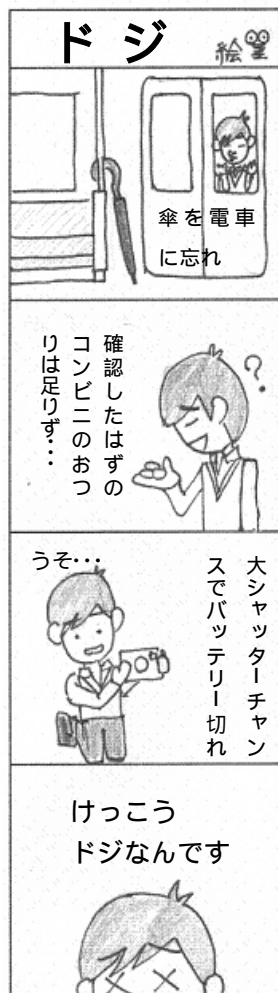 ドジ
絵
傘を電車
に忘れ
確認したはずの
コンビニのおつ
りは足りず・・・
?
大シャッターチャン
スでバッテリー切れ
うそ・・・
けっこう
ドジなんです